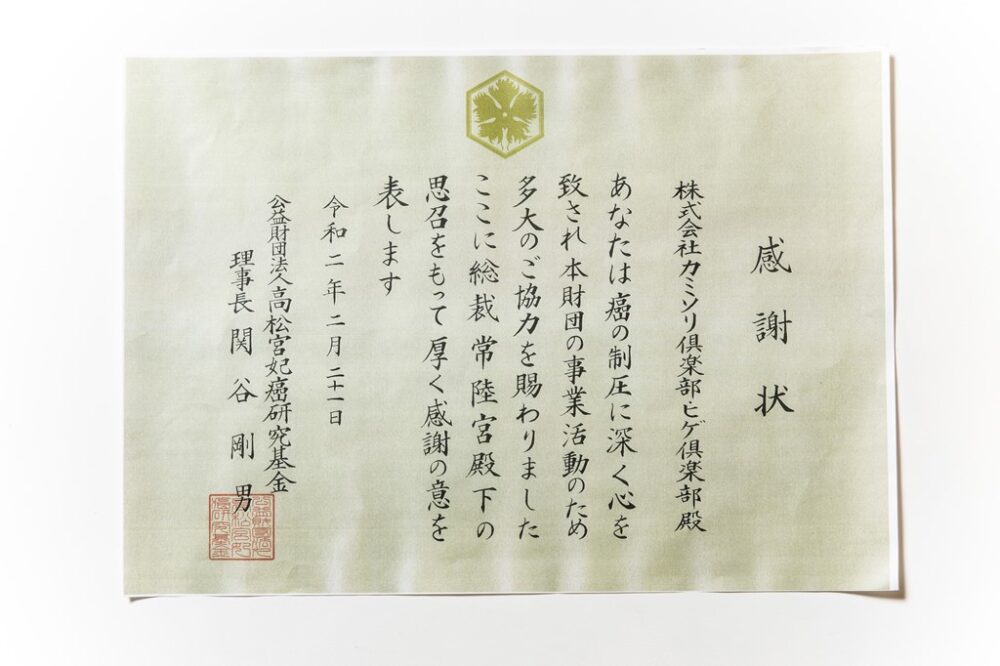 感謝状
株式会社カミソリ倶楽部・ヒゲ倶楽部殿
あなたは癌の制圧に深く心を
致され本財団の事業活動のため
多大のご協力を賜わりました
ここに総裁常陸宮殿下の
思召をもって厚く感謝の意を
表します
令和二年二月二十一日
公益財団法人高松宮妃癌研究基金
理事長関谷剛男